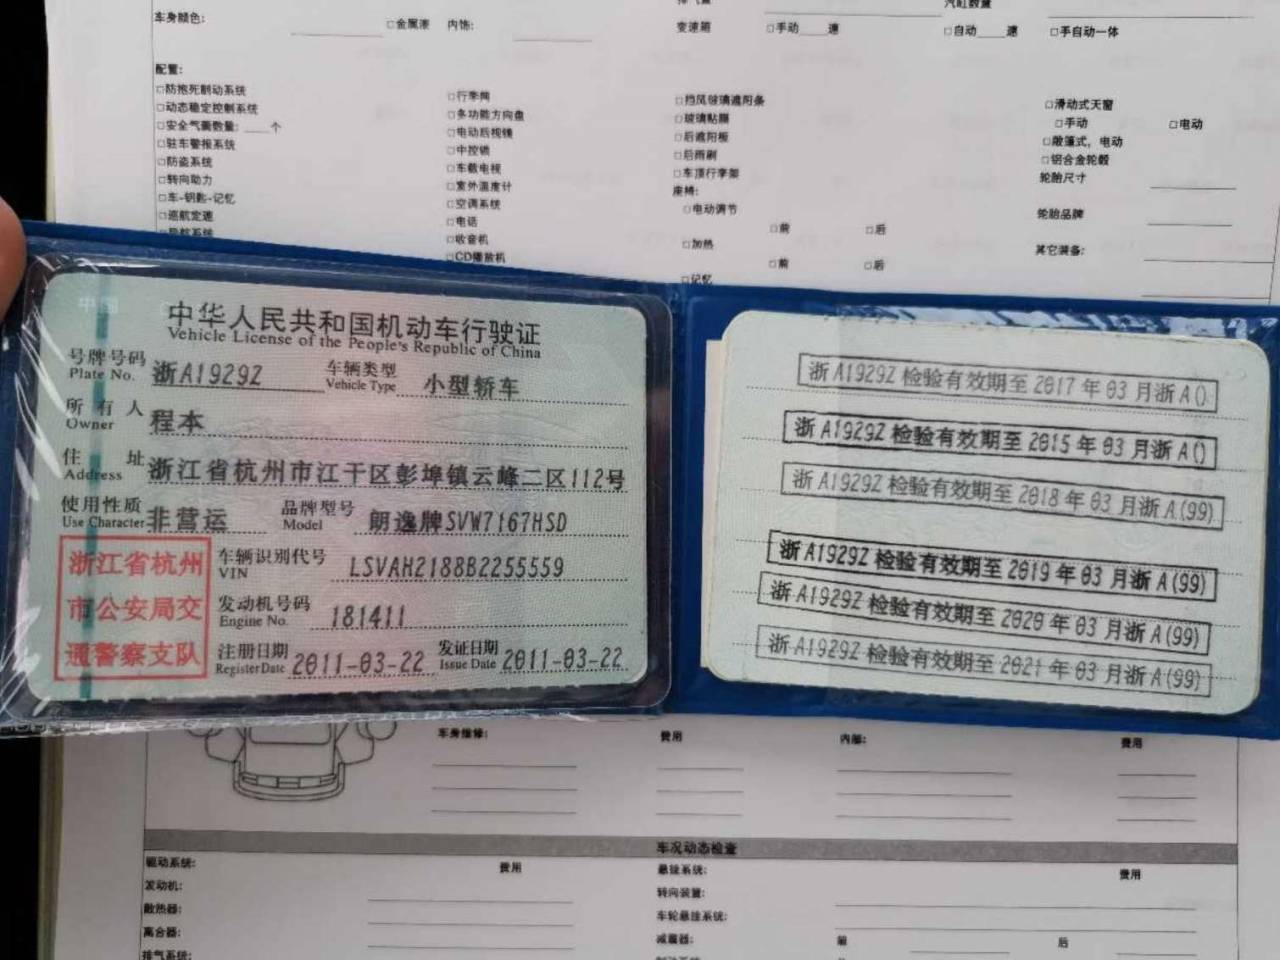 汽缸数量
车身颜色:
□金属漆
内饰:
变速箱
□手动____速
□自动____速
□手自动一体
配置:
□防抱死制动系统
□动态稳定控制系统
□安全气囊数量: ____个
□驻车警报系统
□防盗系统
□转向助力
□车-钥匙-记忆
□巡航定速
□导航系统
□行李网
□多功能方向盘
□电动后视镜
□中控锁
□车载电视
□室外温度计
□空调系统
□电话
□收音机
□CD播放机
□挡风玻璃遮阳条
□玻璃贴膜
□后遮阳板
□后雨刷
□车顶行李架
座椅:
□电动调节
□前
□后
□加热
□前
□后
□记忆
□滑动式天窗
□手动
□电动
□敞篷式, 电动
□铝合金轮毂
轮胎尺寸
轮胎品牌
其它装备:
中华人民共和国机动车行驶证
Vehicle License of the People's Republic of China
号牌号码 浙A1929Z 车辆类型 小型轿车
Plate No. Vehicle Type
所有人 程本
Owner
住址 浙江省杭州市江干区彭埠镇云峰二区112号
Address
使用性质 非营运 品牌型号 朗逸牌SVW7167HSD
Use Character Model
浙江省杭州
市公安局交
通警察支队
车辆识别代号 LSVAH2188B2255559
VIN
发动机号码 181411
Engine No.
注册日期 2011-03-22 发证日期 2011-03-22
Register Date Issue Date
浙A1929Z检验有效期至2017年03月浙A()
浙A1929Z检验有效期至2015年03月浙A()
浙A1929Z检验有效期至2018年03月浙A(99)
浙A1929Z检验有效期至2019年03月浙A(99)
浙A1929Z检验有效期至2020年03月浙A(99)
浙A1929Z检验有效期至2021年03月浙A(99)
车身维修:
费用
内部:
费用
车况动态检查
驱动系统:
费用
发动机:
散热器:
离合器:
排气系统:
悬挂系统:
费用
转向装置:
车轮悬挂系统:
减震器:
前
后